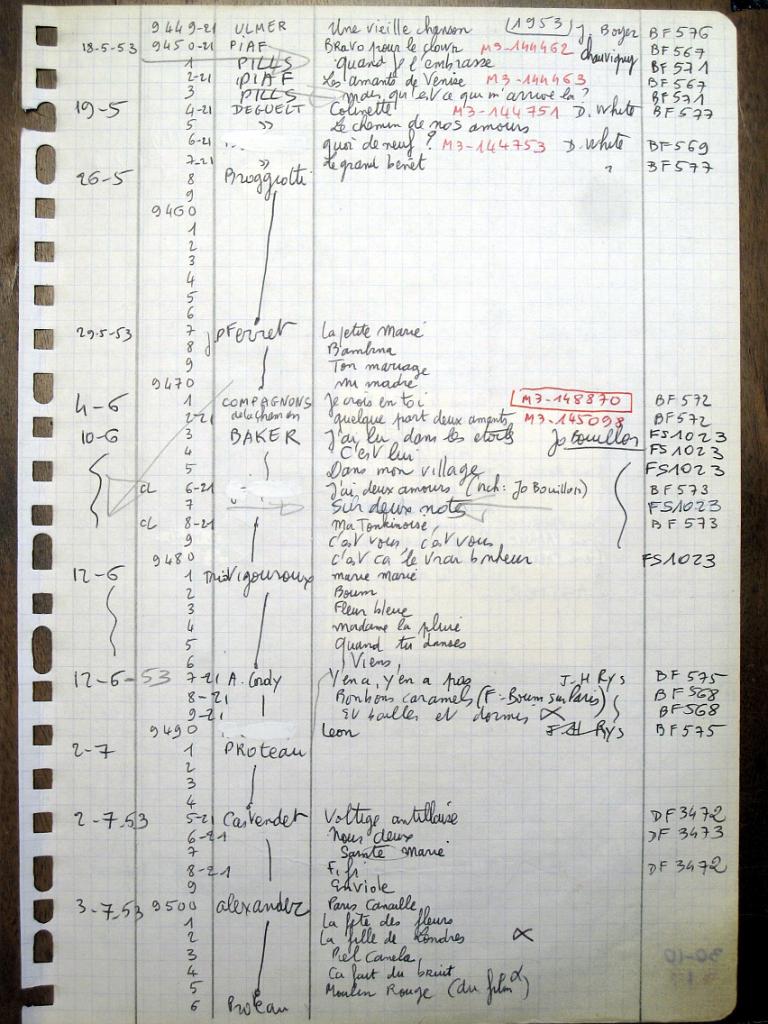 9449-21 ULMER Une vieille chanson (1953) J. Boyer BF576
18-5-53 9450-21 PIAF Bravo pour le clown M3-144462 Chauvigny BF567
1 PILLS quand je l'embrasse BF571
2-21 PIAF Les amants de Venise M3-144463 BF567
3 PILLS mais qu'est ce qui m'arrive là? BF571
19-5 4-21 DEGUELT Colinette M3-144751 D. White BF577
5 " Le chemin de nos amours
6-21 quoi de neuf? M3-144753 D. White BF569
7-21 " Le grand benêt " BF577
26-5 8 Broggiotti
9
9460
1
2
3
4
5
6
29-5-53 7 jpFerret La petite Marie
8 Bambina
9 Ton mariage
9470 mi madre
4-6 1 COMPAGNONS de la chanson Je crois en toi M3-148870 BF572
2-21 quelque part deux amants M3-145098 BF572
10-6 3 BAKER J'ai lu dans les etoiles Jo Bouillon FS1023
4 C'est lui FS1023
5 Dans mon village FS1023
CL 6-21 J'ai deux amours (orch: Jo Bouillon) BF573
7 Sur deux notes FS1023
CL 8-21 Ma Tonkinoise BF573
9 c'est vous, c'est vous
9480 c'est ça le vrai bonheur FS1023
12-6 1 Trio Vigouroux marie marie
2 Boum
3 Fleur bleue
4 madame la pluie
5 quand tu danses
6 Viens
12-6-53 7-21 A. Cordy Y'en a, y'en a pas J-H Rys BF575
8-21 Bonbons caramels (F: Boum sur Paris) BF568
9-21 Et bailles et dormis α BF568
9490 Leon J-H Rys BF575
2-7 1 PROTEAU
2
3
4
2-7.53 5-21 Castendet Voltige antillaise DF3472
6-21 Nous deux DF3473
7 Sainte Marie
8-21 Fifi DF3472
9 Enviole
3-7.53 9500 alexander Paris Canaille
1 La fete des fleurs
2 La fille de Londres α
3 Piel Canela
4 Ca fait du bruit
5 Moulin Rouge (du film α)
6 Proteau